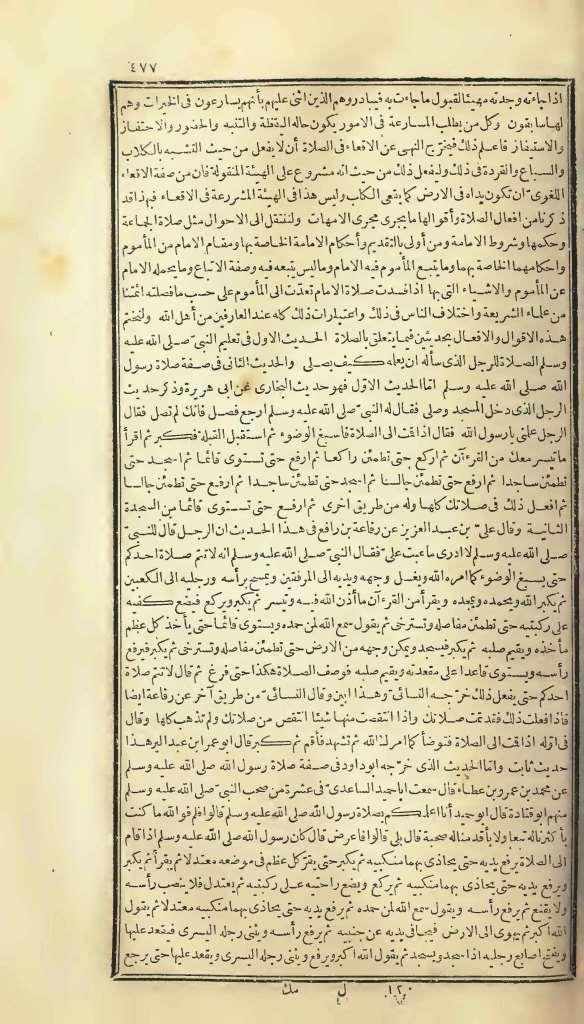 ٤٧٧
اذا جاءته وجدته مهيئا لقبول ما جاءت به فيبادر وهم الذين اثنى عليهم بأنهم يسارعون فى الخيرات وهم
لها سابقون وكل من يطلب المسارعة فى الامور يكون حاله اليقظة والتنبه والحضور والاحتفاز
والاستيفاز فاعلم ذلك فيخرج النهى عن الاقعاء فى الصلاة أن لا يفعل من حيث التشبه بالكلاب
والسباع والقردة فى ذلك وليفعل ذلك من حيث انه مشروع على الهيئة المنقولة فان من صفة الاقعاء
اللغوى ان تكون يداه فى الارض كما يقعى الكلب وليس هذا فى الهيئة المشروعة فى الاقعاء فهذا قد
ذكرنا من افعال الصلاة وأقوالها ما يجرى مجرى الامهات ولننتقل الى الاحوال مثل صلاة الجماعة
وحكمها وشروط الامامة ومن أولى بالتقديم وأحكام الامامة الخاصة بها ومقام الامام من المأموم
واحكامهما الخاصة بهما وما يتبع المأموم فيه الامام وما ليس يتبعه فيه وصفة الاتباع وما يحمله الامام
عن المأموم والاشياء التى بها اذا فسدت صلاة الامام تعدّت الى المأموم على حسب ما فصلته ائمتنا
من علماء الشريعة واختلاف الناس فى ذلك واعتبارات ذلك كله عند العارفين من أهل الله ولنختم
هذه الاقوال والافعال بحديثين فيما يتعلق بالصلاة الحديث الاول فى تعليم النبى صلى الله عليه
وسلم الصلاة للرجل الذى سأله ان يعلمه كيف يصلى والحديث الثانى فى صفة صلاة رسول
الله صلى الله عليه وسلم امّا الحديث الاوّل فهو حديث البخارى عن ابى هريرة وذكر حديث
الرجل الذى دخل المسجد وصلى فقال له النبى صلى الله عليه وسلم ارجع فصل فانك لم تصل فقال
الرجل علمنى يا رسول الله فقال اذا قت الى الصلاة فاسبغ الوضوء ثم استقبل القبلة فكبر ثم اقرأ
ما تيسر معك من القرءآن ثم اركع حتى تطمئن راكعا ثم ارفع حتى تستوى قائما ثم اسجد حتى
تطمئن ساجدا ثم ارفع حتى تطمئن جالسا ثم اسجد حتى تطمئن ساجدا ثم ارفع حتى تطمئن جالسا
ثم افعل ذلك فى صلاتك كلها وله من طريق اخرى ثم ارفع حتى تستوى قائما من السجدة
الثانية وقال علىّ بن عبد العزيز عن رفاعة بن رافع فى هذا الحديث ان الرجل قال للنبىّ
صلى الله عليه وسلم لا ادرى ما عبت علىّ فقال النبىّ صلى الله عليه وسلم انه لا تتم صلاة احدكم
حتى يسبغ الوضوء كما امره الله ويغسل وجهه ويديه الى المرفقين ويمسح برأسه ورجليه الى الكعبين
ثم يكبر الله ويحمده ويمجده ويقرأ من القرءآن ما أذن الله فيه وتيسر ثم يكبر ويركع فيضع كفيه
على ركبتيه حتى تطمئن مفاصله وتسترخى ثم يقول سمع الله لمن حمده ويستوى قائما حتى يأخذ كل عظم
مأخذه ويقيم صلبه ثم يكبر فيسجد ويمكن وجهه من الارض حتى تطمئن مفاصله وتسترخى ثم يكبر فيرفع
رأسه ويستوى قاعدا على مقعدته ويقيم صلبه فوصف الصلاة هكذا حتى فرغ ثم قال لا تتم صلاة
احدكم حتى يفعل ذلك خرّجه النسائى وهذا ابين وقال النسائىّ من طريق آخر عن رفاعة ايضا
فاذا فعلت ذلك فقد تمت صلاتك واذا انتقصت منها شيئا انتقص من صلاتك ولم تذهب كلها وقال
فى اوّله اذا قت الى الصلاة فتوضأ كما امرك الله ثم تشهد فأقم ثم كبر قال ابو عمر ابن عبد البر هذا
حديث ثابت وامّا الحديث الذى خرّجه ابو داود فى صفة صلاة رسول الله صلى الله عليه وسلم
عن محمد بن عمرو بن عطاء قال سمعت ابا حميد الساعدى فى عشرة من صحب النبىّ صلى الله عليه وسلم
منهم ابو قتادة قال ابو حميد أنا اعلمكم بصلاة رسول الله صلى الله عليه وسلم قالوا فلم فو الله ما كنت
بأكثرنا له تبعا ولا بأقدمنا له صحبة قال بلى قالوا فاعرض قال كان رسول الله صلى الله عليه وسلم اذا قام
الى الصلاة يرفع يديه حتى يحاذى بهما منكبيه ثم يكبر حتى يقرّ كل عظم فى موضعه معتدلا ثم يقرأ ثم يكبر
ويرفع يديه حتى يحاذى بهما منكبيه ثم يركع ويضع راحتيه على ركبتيه ثم يعتدل فلا ينصب رأسه
ولا يقنع ثم يرفع رأسه ويقول سمع الله لمن حمده ثم يرفع يديه حتى يحاذى بهما منكبيه معتدلا ثم يقول
الله اكبر ثم يهوى الى الارض فيجافى يديه عن جنبيه ثم يرفع رأسه ويثنى رجله اليسرى فيقعد عليها
ويفتح اصابع رجليه اذا سجد ويسجد ثم يقول الله اكبر ويرفع ويثنى رجله اليسرى ويقعد عليها حتى يرجع
١٢٠ ل مك